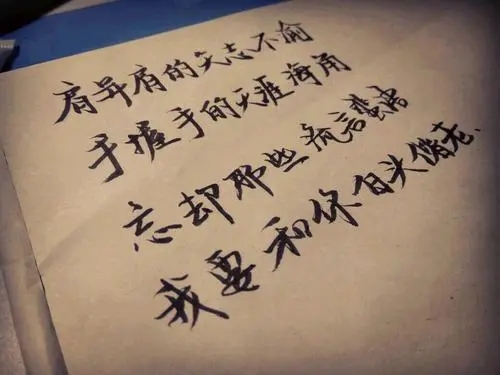 肩并肩的矢志不渝
手握手的天涯海角
忘却那些流言蜚语
我要和你白头偕老